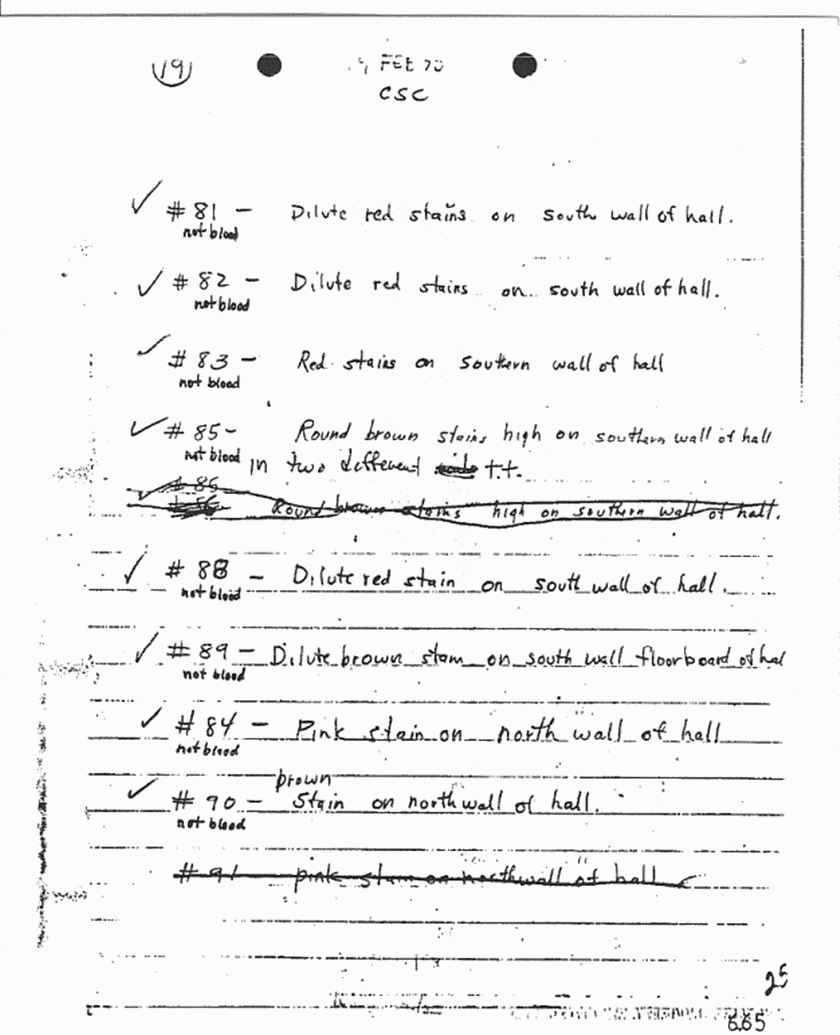 19
FEB 70
CSC
# 81 - Dilute red stains on south wall of hall.
not blood
# 82 - Dilute red stains on south wall of hall.
not blood
# 83 - Red stains on southern wall of hall
not blood
# 85 - Round brown stains high on southern wall of hall
not blood in two different t.t.
# 86
Round brown stains high on southern wall of hall.
# 88 - Dilute red stain on south wall of hall.
not blood
# 89 - Dilute brown stain on south wall floorboard of hal
not blood
# 84 - Pink stain on north wall of hall
not blood
brown
# 90 - Stain on north wall of hall.
not blood
# 91 pink stain on north wall of hall
25
665